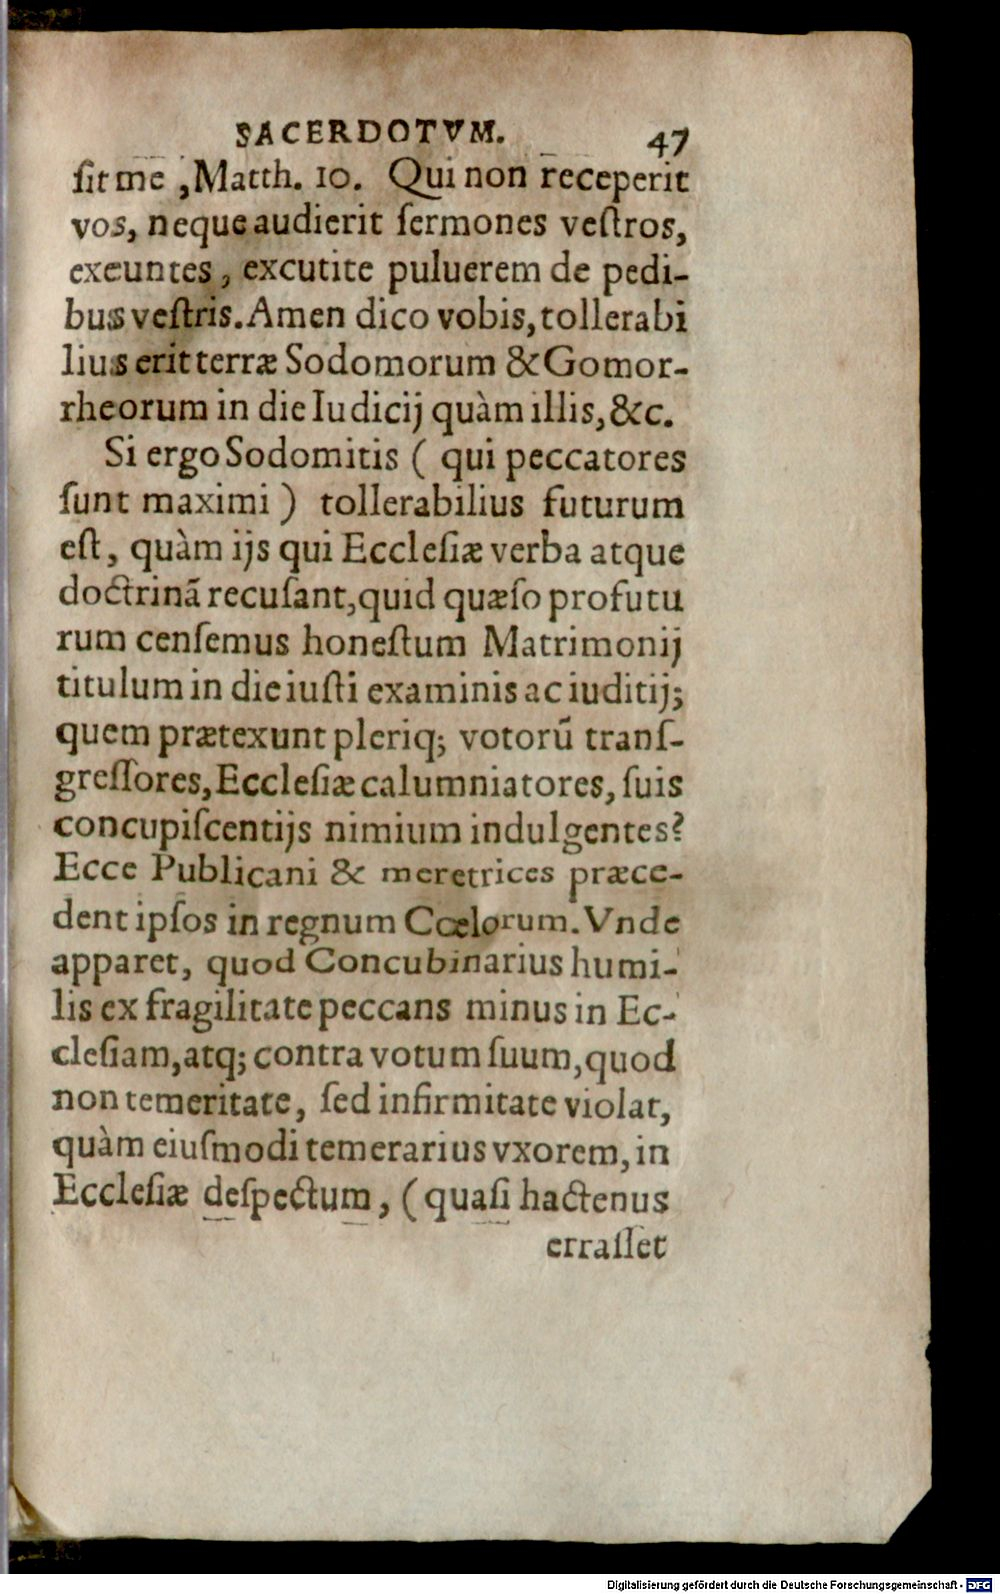 SACERDOTVM. 47
ſit me, Matth. 10. Qui non receperit
vos, neque audierit ſermones veſtros,
exeuntes, excutite puluerem de pedi-
bus veſtris. Amen dico vobis, tollerabi
lius erit terræ Sodomorum & Gomor-
rheorum in die Iudicij quàm illis, &c.
Si ergo Sodomitis ( qui peccatores
ſunt maximi ) tollerabilius futurum
eſt, quàm ijs qui Eccleſiæ verba atque
doctrinã recuſant, quid quæſo profutu
rum cenſemus honeſtum Matrimonij
titulum in die iuſti examinis ac iuditij;
quem prætexunt pleriq; votorũ tranſ-
greſſores, Eccleſiæ calumniatores, ſuis
concupiſcentijs nimium indulgentes?
Ecce Publicani & meretrices præce-
dent ipſos in regnum Cœlorum. Vnde
apparet, quod Concubinarius humi-
lis ex fragilitate peccans minus in Ec-
cleſiam, atq; contra votum ſuum, quod
non temeritate, ſed infirmitate violat,
quàm eiuſmodi temerarius vxorem, in
Eccleſiæ deſpectum, (quaſi hactenus
erraſſet
Digitalisierung gefördert durch die Deutsche Forschungsgemeinschaft - DFG